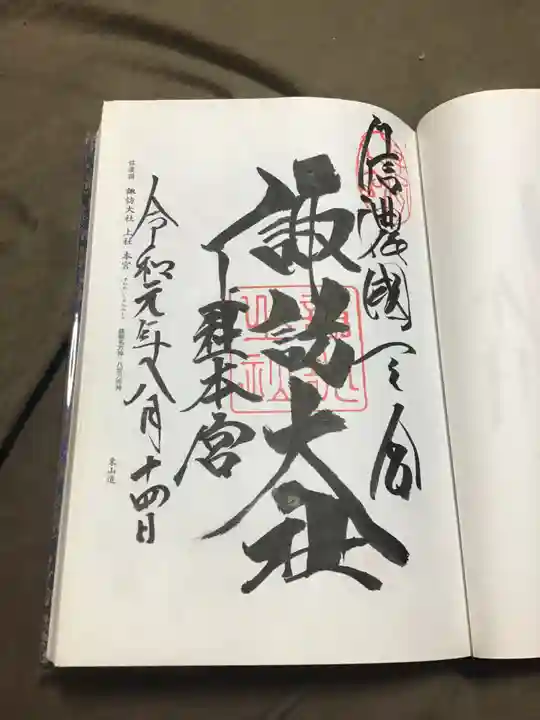 信濃國一之宮
諏訪大社
上社本宮
令和元年八月十四日
信濃国 諏訪大社 上社 本宮
東山道